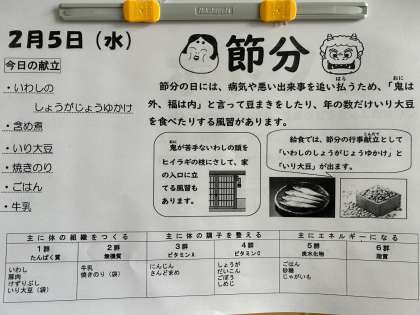 2月5日（水）
節分
今日の献立
・いわしの
しょうがじょうゆかけ
・含め煮
・いり大豆
・焼きのり
・ごはん
・牛乳
節分の日には、病気や悪い出来事を追い払うため、「鬼は
外、福は内」と言って豆まきをしたり、年の数だけいり大豆
を食べたりする風習があります。
鬼が苦手ないわしの頭を
ヒイラギの枝にさして、家
の入口に立
てる風習も
あります。
給食では、節分の行事献立として
「いわしのしょうがじょうゆかけ」と
「いり大豆」が出ます。
主に体の組織をつくる
主に体の調子を整える
主にエネルギーになる
1群
たんぱく質
2群
無機質
3群
ビタミンA
4群
ビタミンC
5群
炭水化物
6群
脂質
いわし
豚肉
けずりぶし
いり大豆（袋）
牛乳
焼きのり（袋）
にんじん
さんどまめ
しょうが
だいこん
ごぼう
しめじ
ごはん
砂糖
じゃがいも